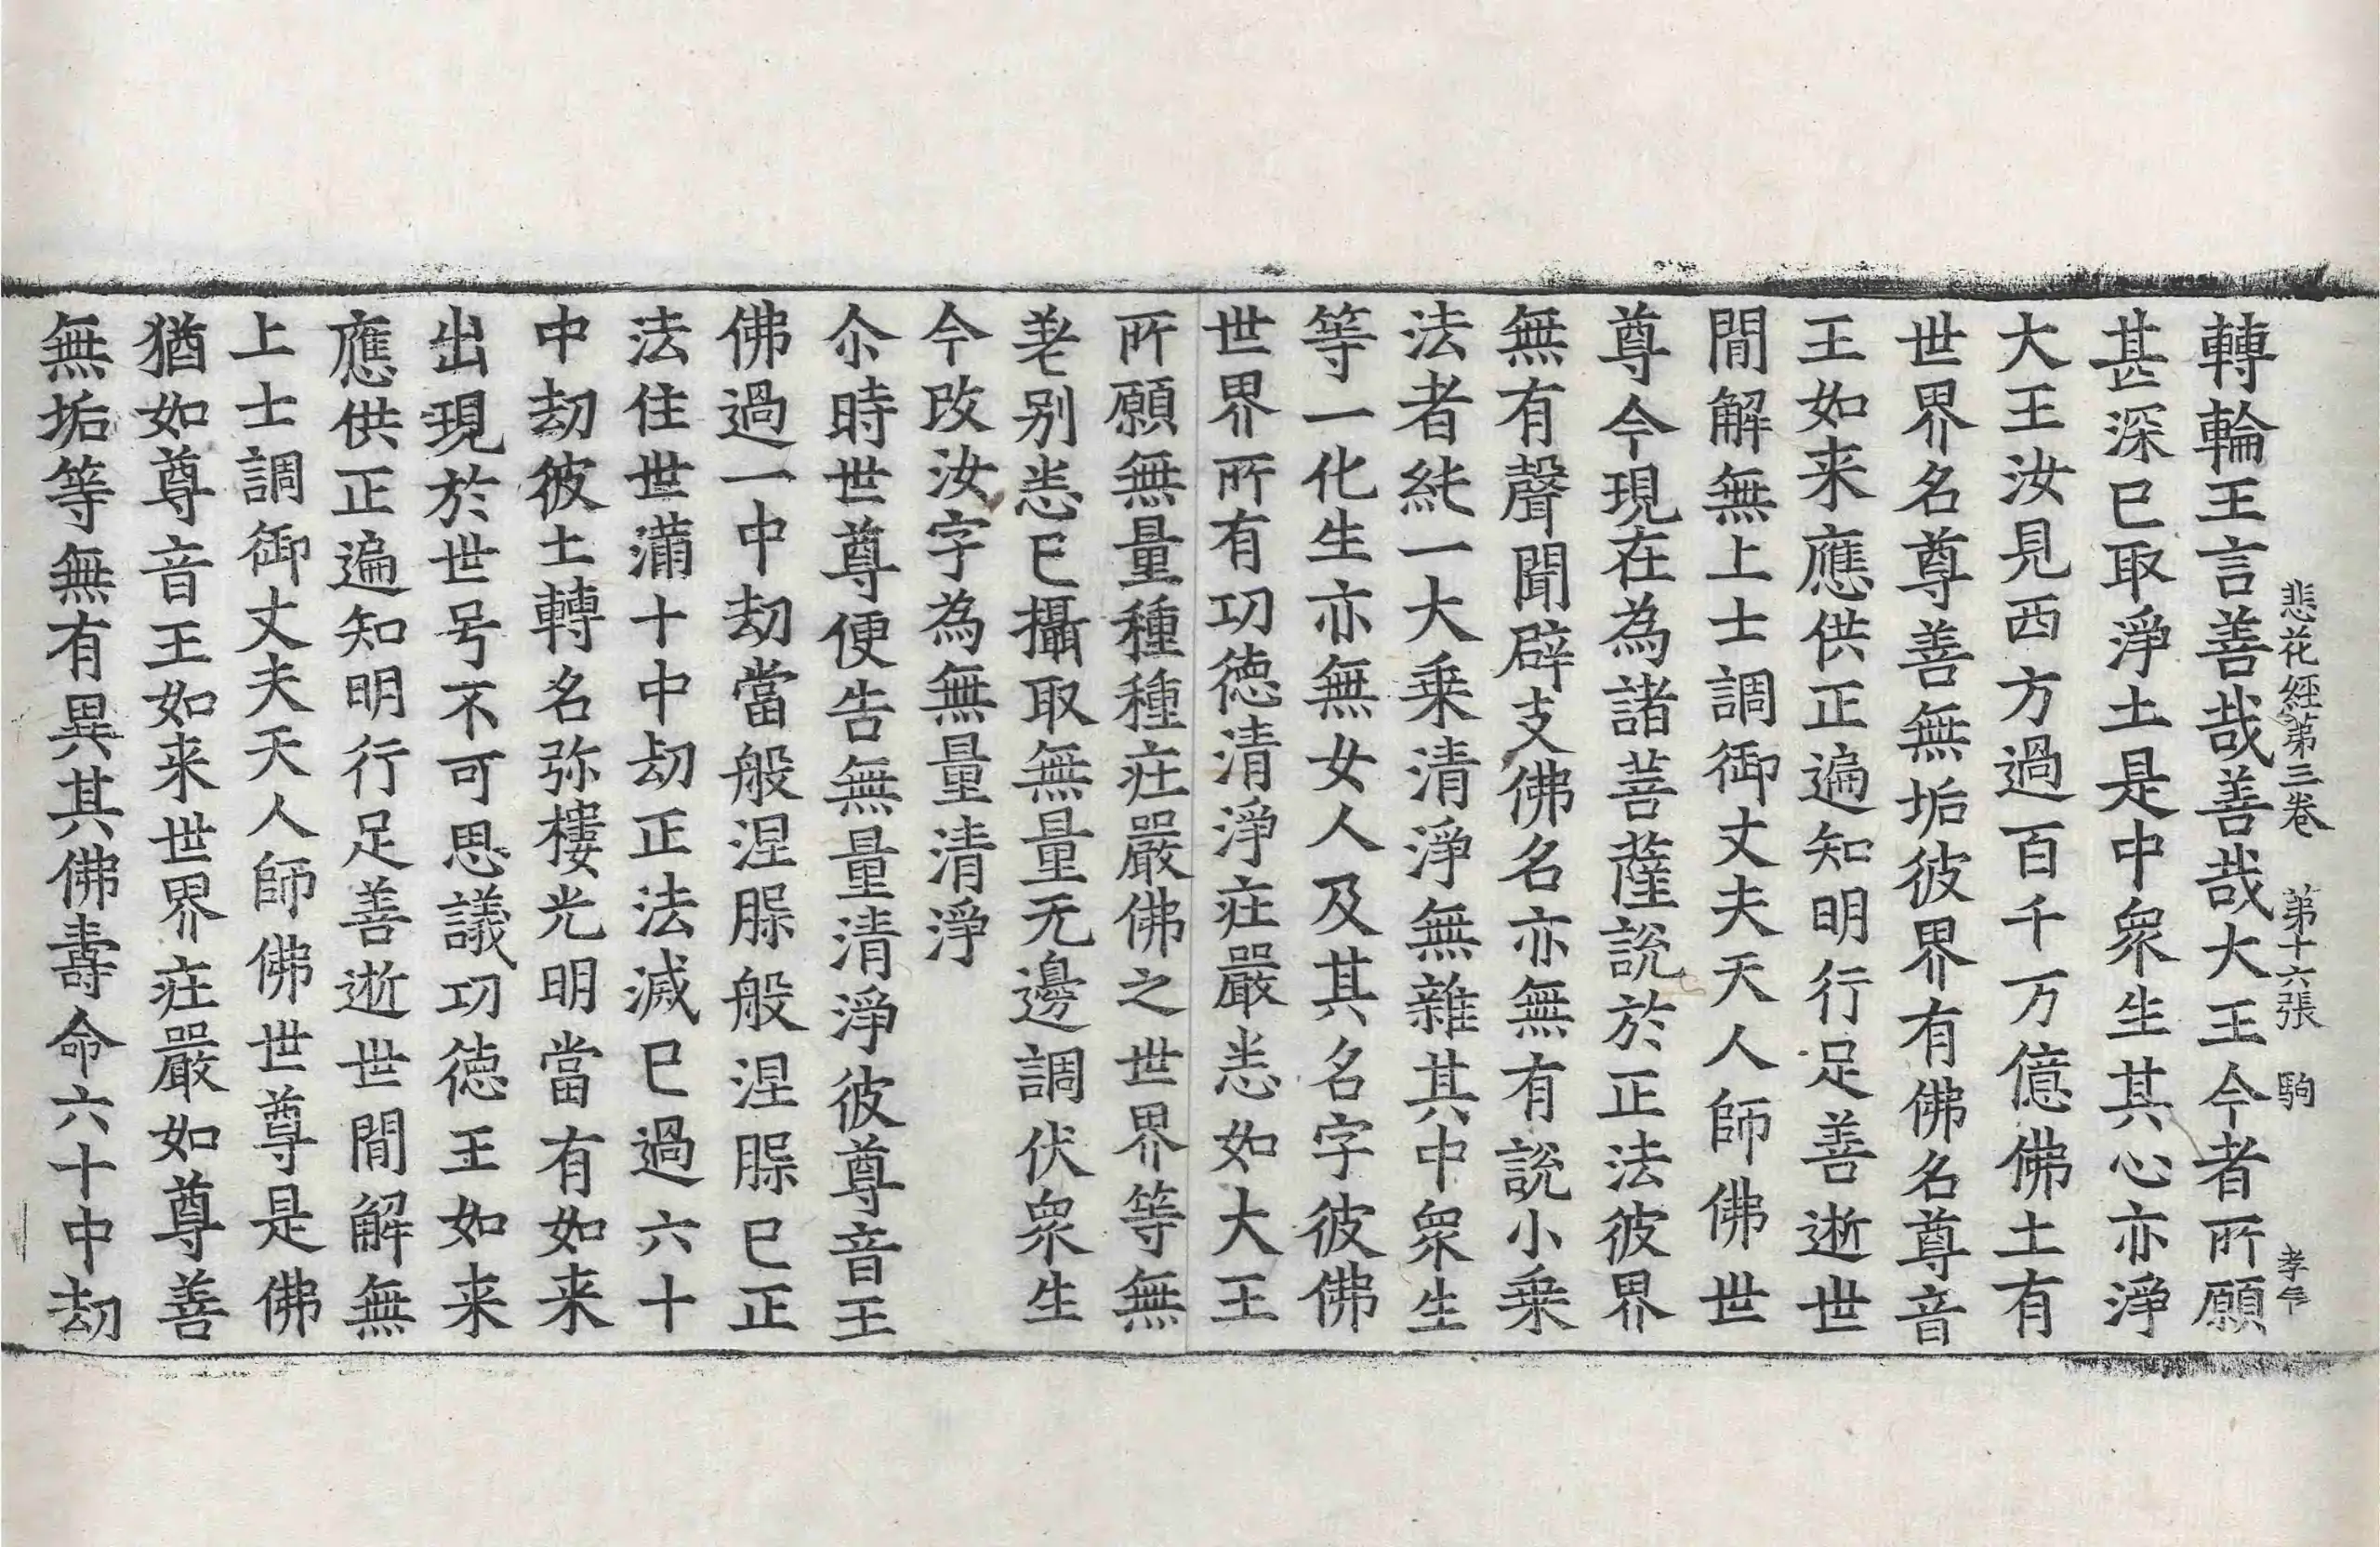 悲花經第三卷　第十六張　駒　孝年
轉輪王言善哉善哉大王今者所願
甚深已取淨土是中衆生其心亦淨
大王汝見西方過百千万億佛土有
世界名尊善無垢彼界有佛名尊音
王如来應供正遍知明行足善逝世
閒解無上士調御丈夫天人師佛世
尊今現在為諸菩薩說於正法彼界
無有聲聞辟支佛名亦無有說小乗
法者純一大乗清淨無雜其中衆生
等一化生亦無女人及其名字彼佛
世界所有功徳清淨莊嚴悉如大王
所願無量種種莊嚴佛之世界等無
差别悉已攝取無量无邊調伏衆生
今改汝字為無量清淨
尒時世尊便告無量清淨彼尊音王
佛過一中劫當般涅槃般涅槃已正
法住世滿十中劫正法滅已過六十
中劫彼土轉名弥樓光明當有如来
出現於世号不可思議功徳王如来
應供正遍知明行足善逝世閒解無
上士調御丈夫天人師佛世尊是佛
猶如尊音王如来世界莊嚴如尊善
無垢等無有異其佛壽命六十中劫